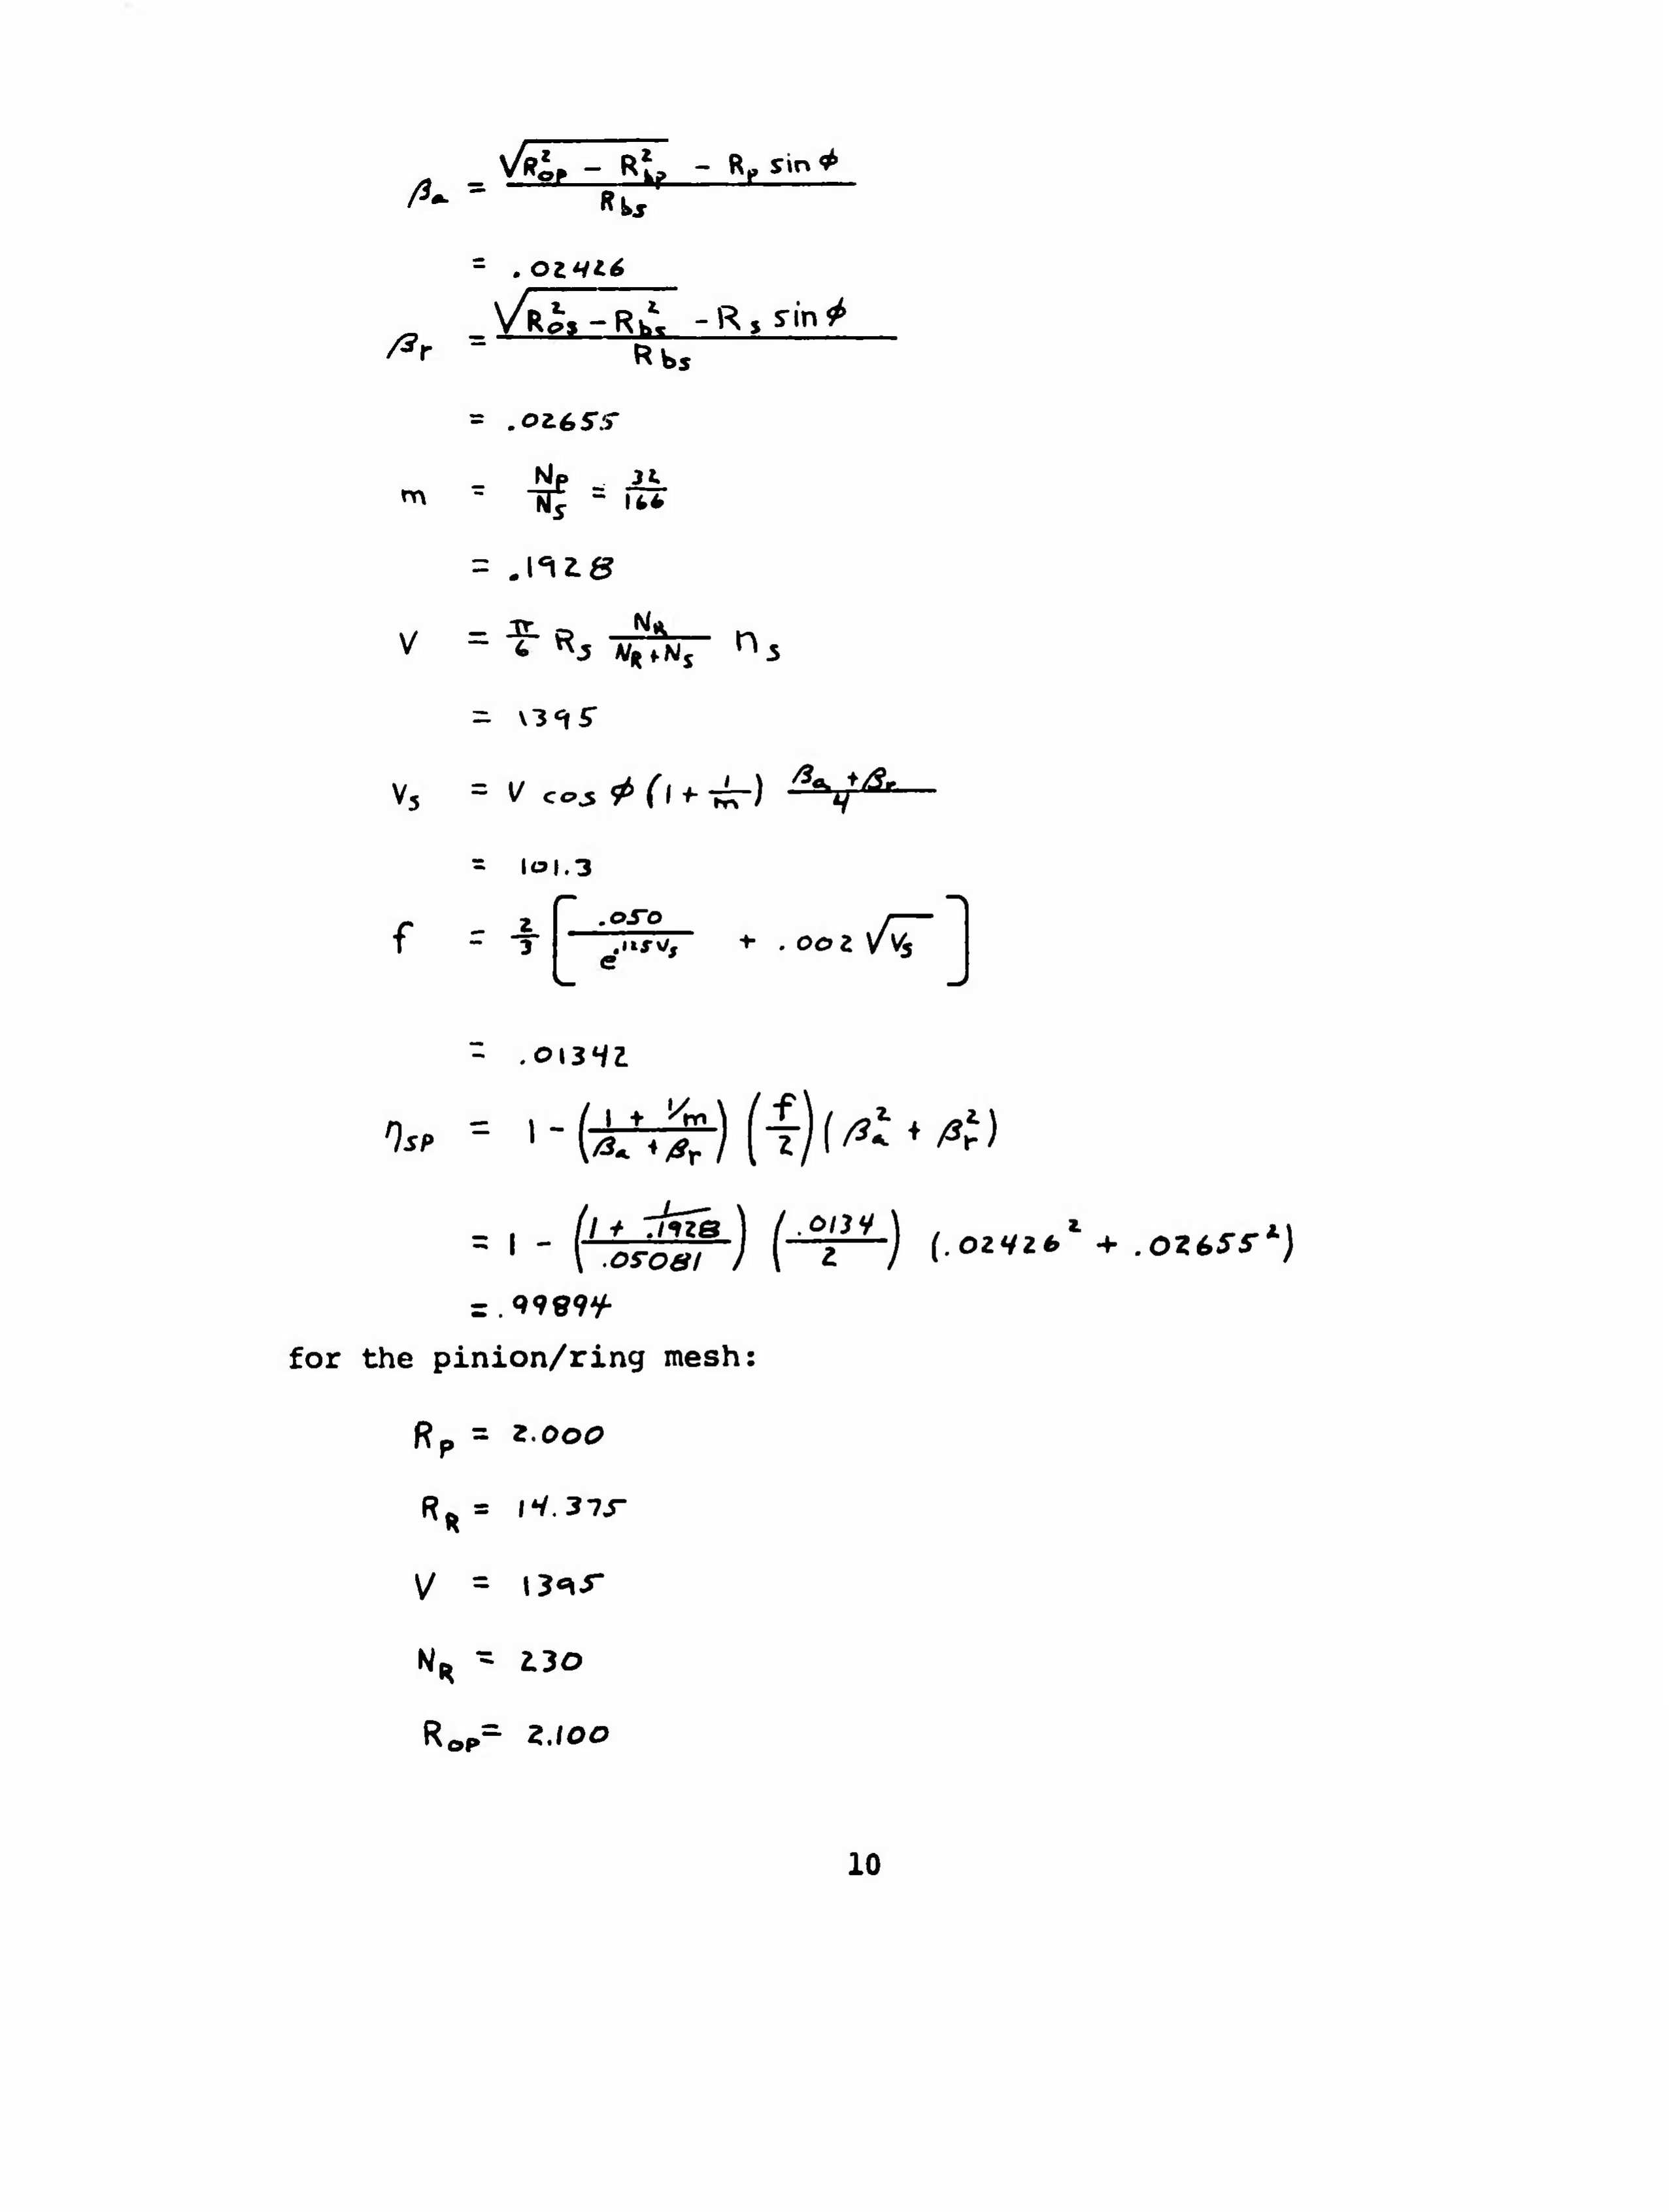 βa = (√(R²op − R²bp) − Rp sin φ) / Rbs
= .02426
βr = (√(R²os − R²bs) − Rs sin φ) / Rbs
= .02655
m = Np/Ns = 32/166
= .1928
V = π/6 Rs NR/(NR+Ns) ns
= 1395
Vs = V cos φ (1 + 1/m) (βa + βr)/4
= 101.3
f = 2/3 [ .050/e^.125Vs + .002 √Vs ]
= .01342
ηSP = 1 − ((1 + 1/m)/(βa + βr)) (f/2) (βa² + βr²)
= 1 − ((1 + 1/.1928)/.05081) (.0134/2) (.02426² + .02655²)
= .99894
for the pinion/ring mesh:
Rp = 2.000
RR = 14.375
V = 1395
NR = 230
Rop = 2.100
10